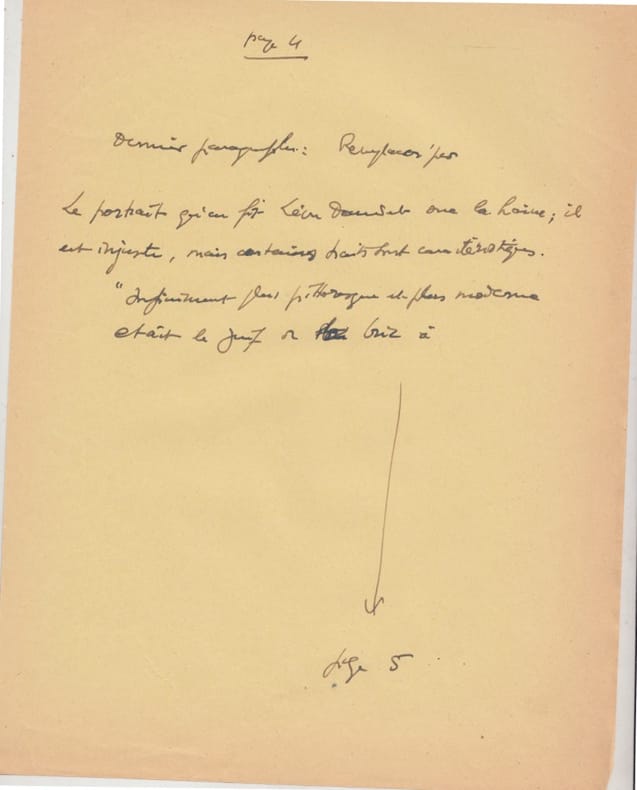 page 4
Dernier paragraphe : Remplacer par
Le portrait qu'en fit Léon Daudet sue la haine ; il
est injuste, mais certains traits sont caractéristiques.
"Infiniment plus pittoresque et plus moderne
était le juif à
page 5